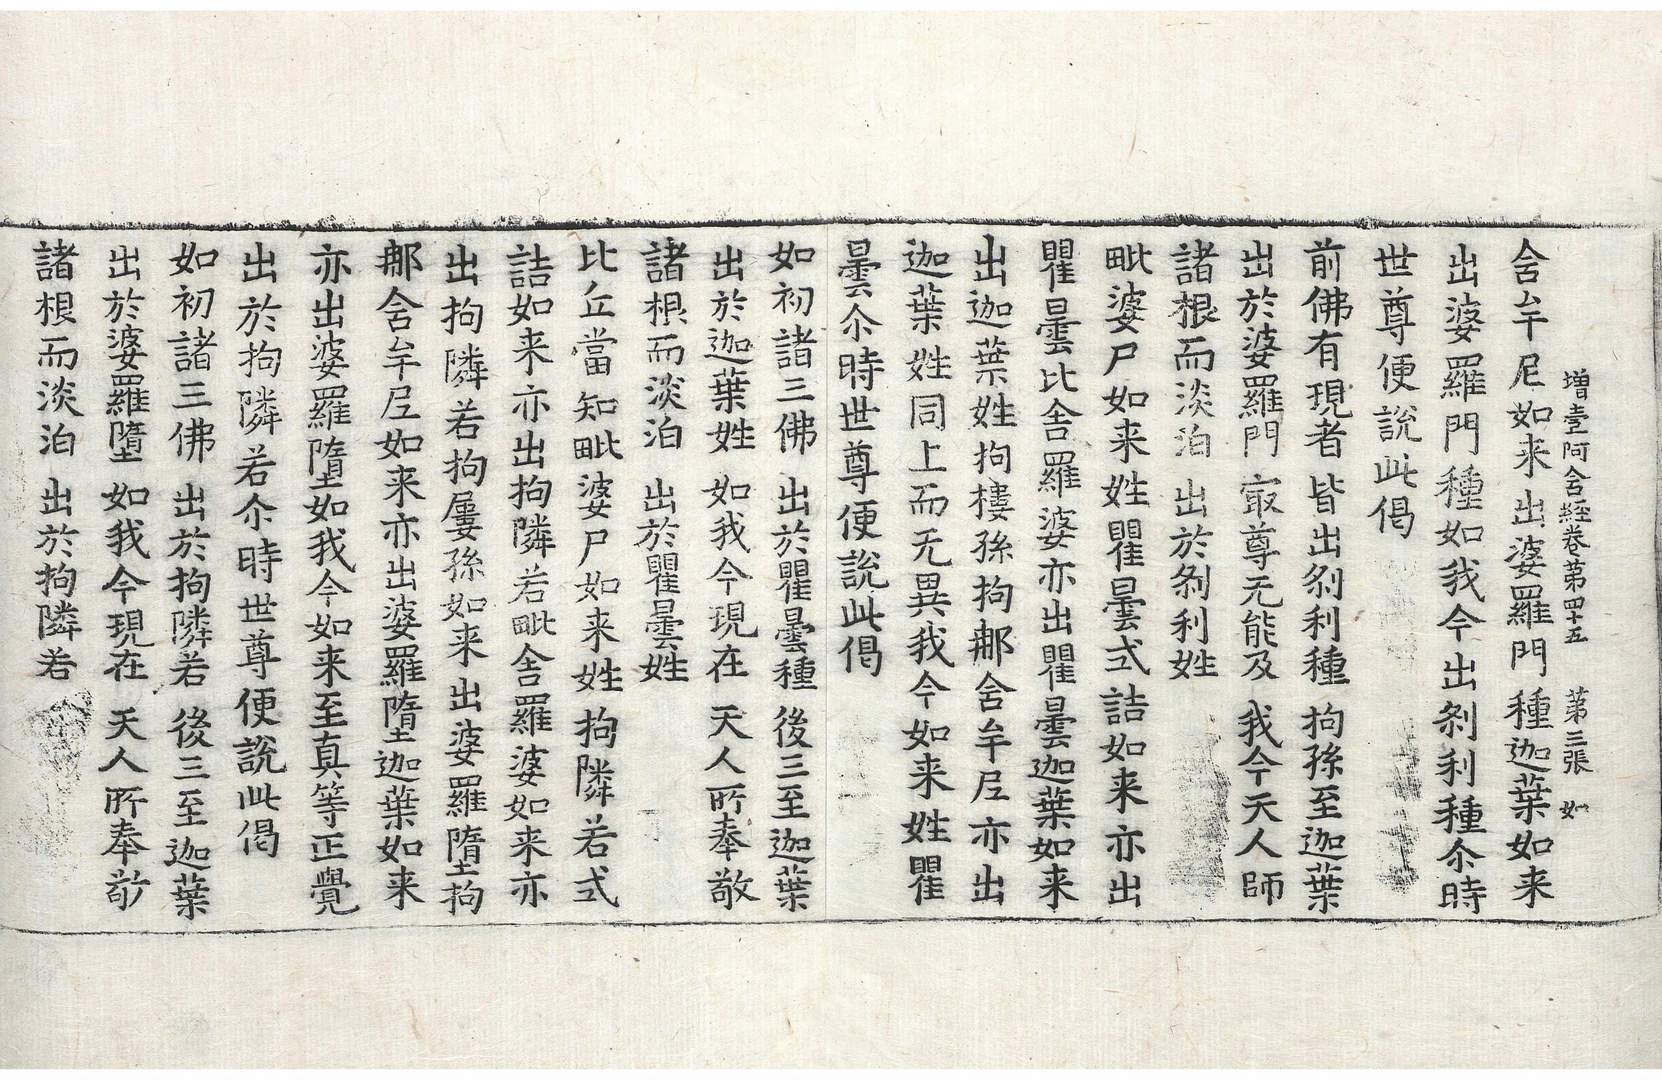 増壹阿含經卷第四十五 第三張 如
含牟尼如来出婆羅門種迦葉如来
出婆羅門種如我今出刹利種尒時
世尊便説此偈
前佛有現者 皆出刹利種 拘孫至迦葉
出於婆羅門 㝡尊无能及 我今天人師
諸根而淡泊 出於刹利姓
毗婆尸如来姓瞿曇式詰如来亦出
瞿曇比舍羅婆亦出瞿曇迦葉如来
出迦葉姓拘樓孫拘𨚗含牟尼亦出
迦葉姓同上而无異我今如来姓瞿
曇尒時世尊便説此偈
如初諸三佛 出於瞿曇種 後三至迦葉
出於迦葉姓 如我今現在 天人所奉敬
諸根而淡泊 出於瞿曇姓
比丘當知毗婆尸如来姓拘隣若式
詰如来亦出拘隣若毗舍羅婆如来亦
出拘隣若拘屢孫如来出婆羅墮拘
𨚗含牟尼如来亦出婆羅墮迦葉如来
亦出婆羅墮如我今如来至真等正覺
出於拘隣若尒時世尊便説此偈
如初諸三佛 出於拘隣若 後三至迦葉
出於婆羅墮 如我今現在 天人所奉敬
諸根而淡泊 出於拘隣若